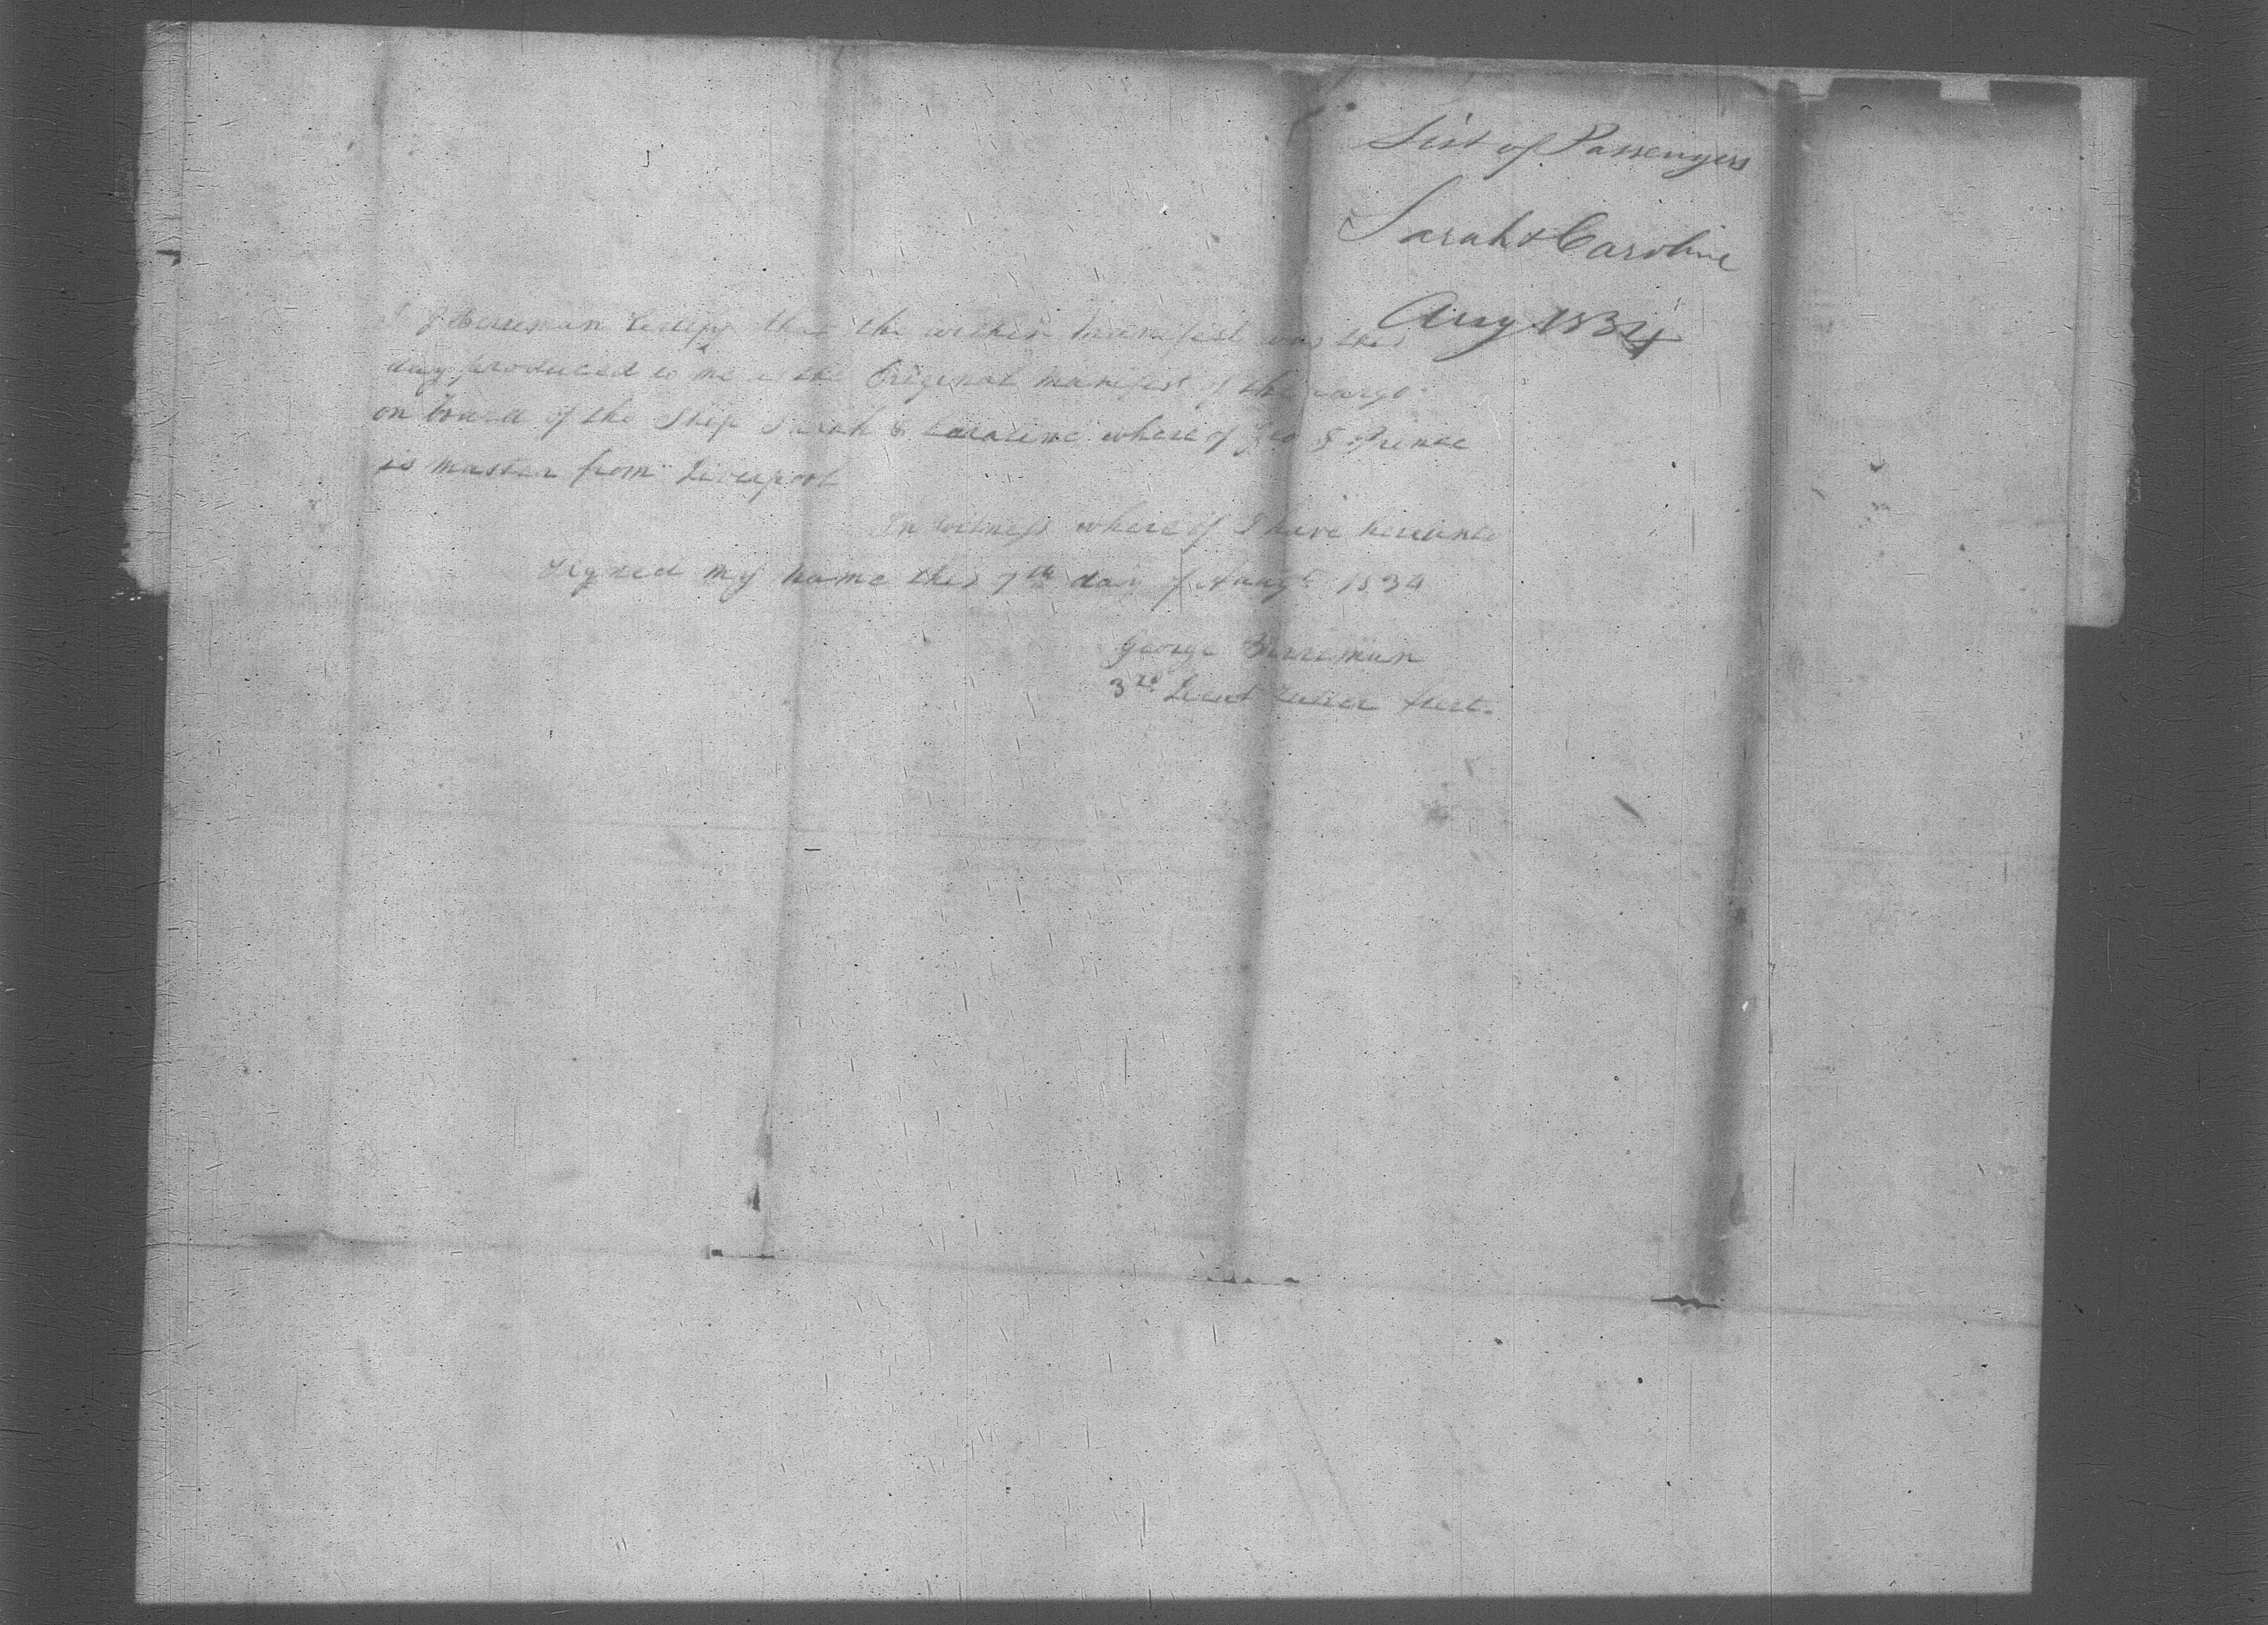 List of Passengers
Sarah & Caroline
Aug 1834
I G Berreman Certify that the within Manifest was this
day produced to me as the Original Manifest of the cargo
on board of the Ship Sarah & Caroline where of Geo Prince
is master from Liverpool
In Witness where of I have hereunto
signed my name this 7th day of Augt 1834
George Berreman
3rd Lieut